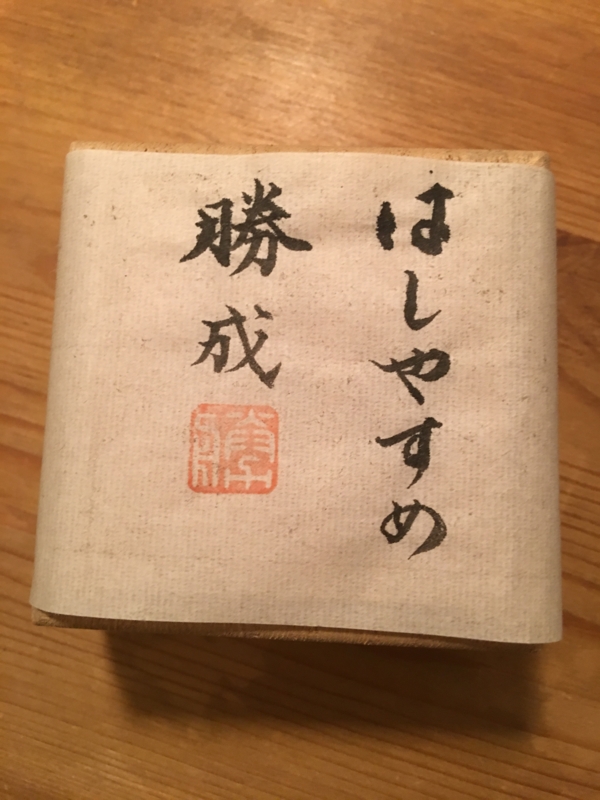 はしやすめ
勝成